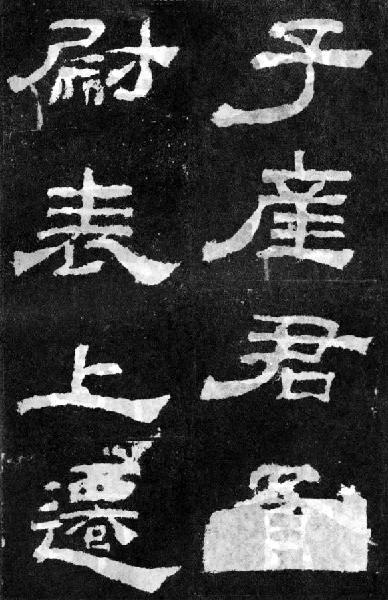 子產君
尉表上遷